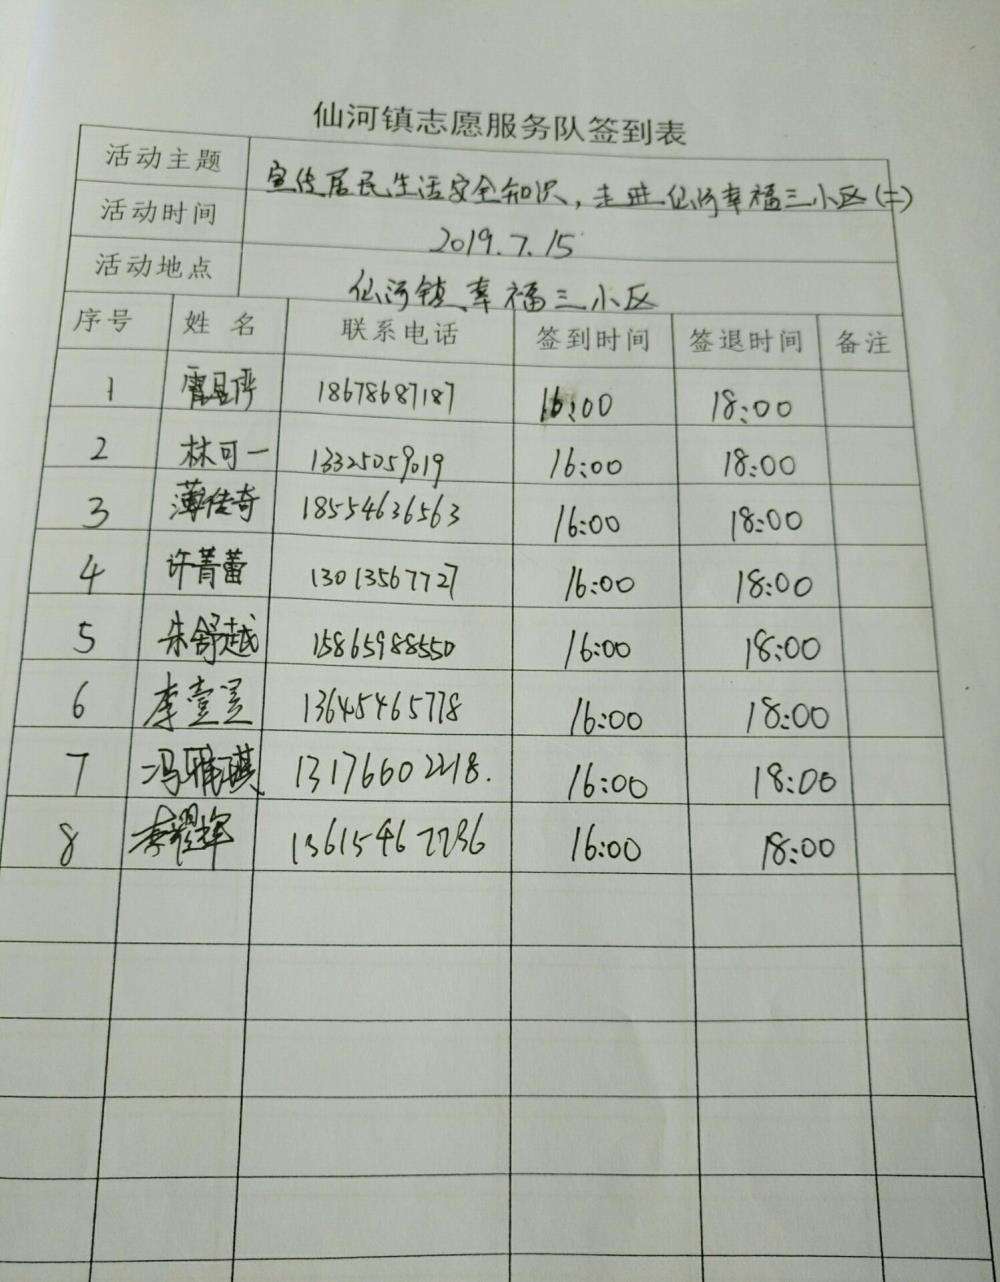 仙河镇志愿服务队签到表
活动主题 宣传居民生活安全知识，走进仙河幸福三小区(二)
活动时间 2019.7.15
活动地点 仙河镇幸福三小区
序号 姓名 联系电话 签到时间 签退时间 备注
1 18678687187 16:00 18:00
2 林可一 13325059019 16:00 18:00
3 薄传奇 18554636563 16:00 18:00
4 许菁蕾 13013567727 16:00 18:00
5 朱舒越 15865988550 16:00 18:00
6 李壹 13645465778 16:00 18:00
7 冯雅琪 13176602218. 16:00 18:00
8 李耀辉 16:00 18:00